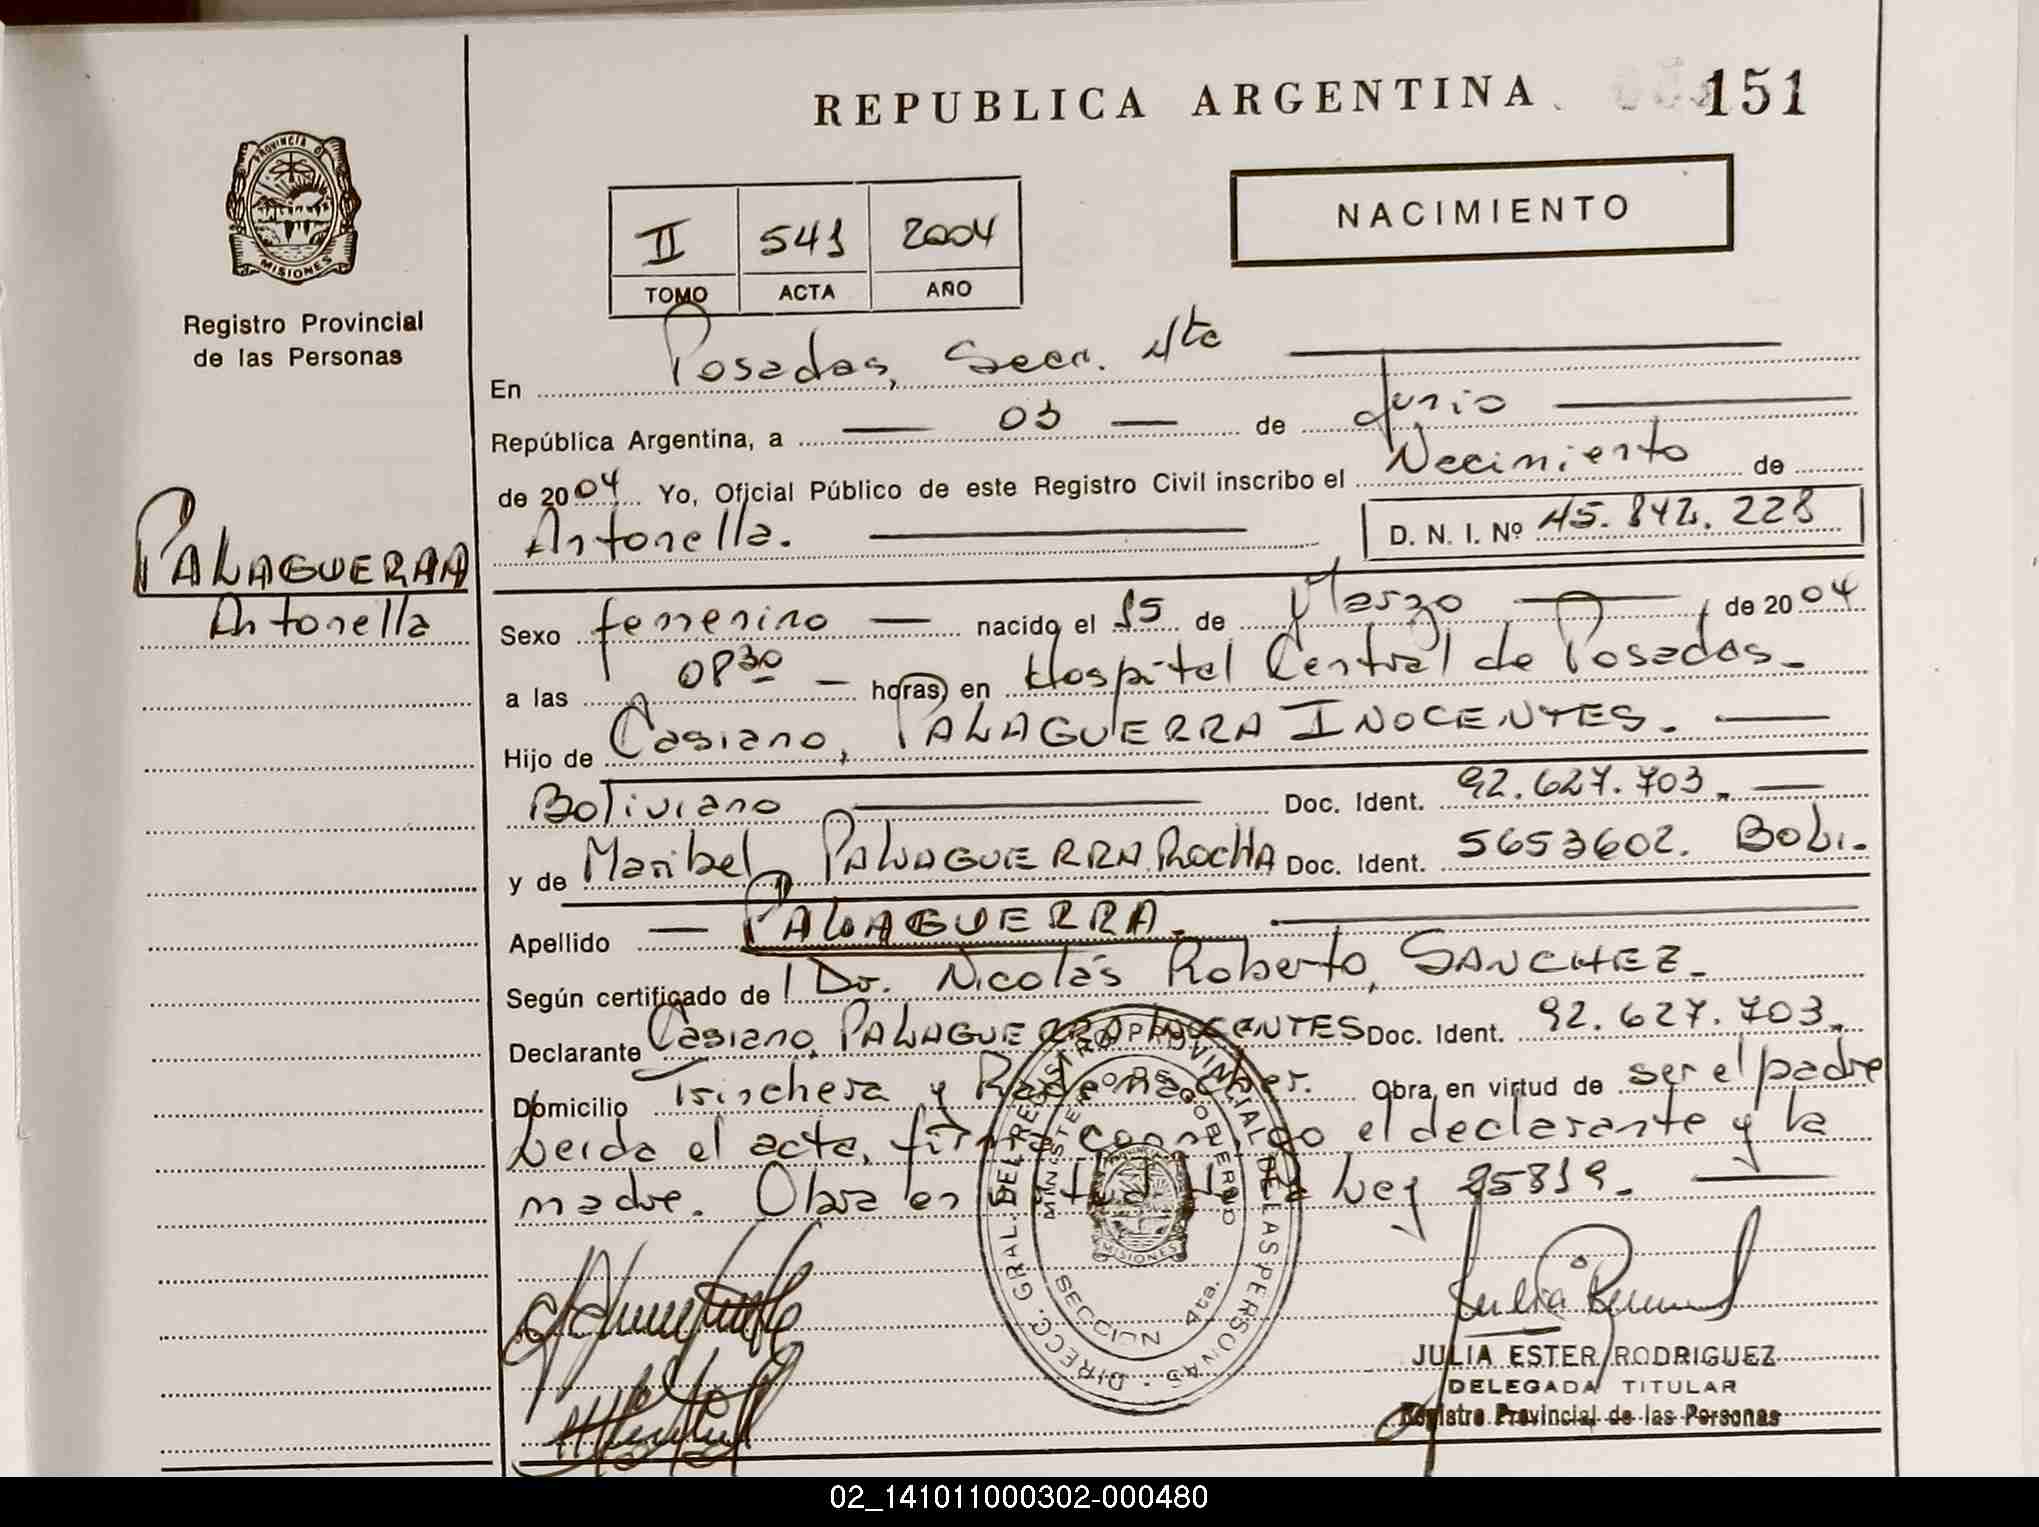 REPUBLICA ARGENTINA
151
PROVINCIA D
MISIONES
Registro Provincial
de las Personas
NACIMIENTO
II 541 2004
TOMO ACTA AÑO
En Posadas, Secc. 4ta
República Argentina, a 03 de Junio
de 2004 Yo, Oficial Público de este Registro Civil inscribo el Nacimiento de
Antonella. D. N. I. Nº 45.842.228
PALAGUERRA
Antonella
Sexo femenino nacido el 15 de Marzo de 2004
a las 08 30 horas en Hospital Central de Posadas.
Hijo de Casiano, PALAGUERRA INOCENTES.
Boliviano Doc. Ident. 92.627.703.
y de Maribel PALAGUERRA ROCHA Doc. Ident. 5653602. Boli.
Apellido PALAGUERRA.
Según certificado de Dr. Nicolás Roberto, SANCHEZ.
Declarante Casiano, PALAGUERRA INOCENTES Doc. Ident. 92.627.703.
Domicilio Trinchera y Rademacher. Obra en virtud de ser el padre
Leida el acta, firma conmigo el declarante y la
madre. Obra en virtud de la Ley 25819.
DIRECC. GRAL. DEL REGISTRO PROVINCIAL DE LAS PERSONAS
MINISTERIO DE GOBIERNO
MISIONES
SECCION 4ta.
JULIA ESTER RODRIGUEZ
DELEGADA TITULAR
Registro Provincial de las Personas
02_141011000302-000480